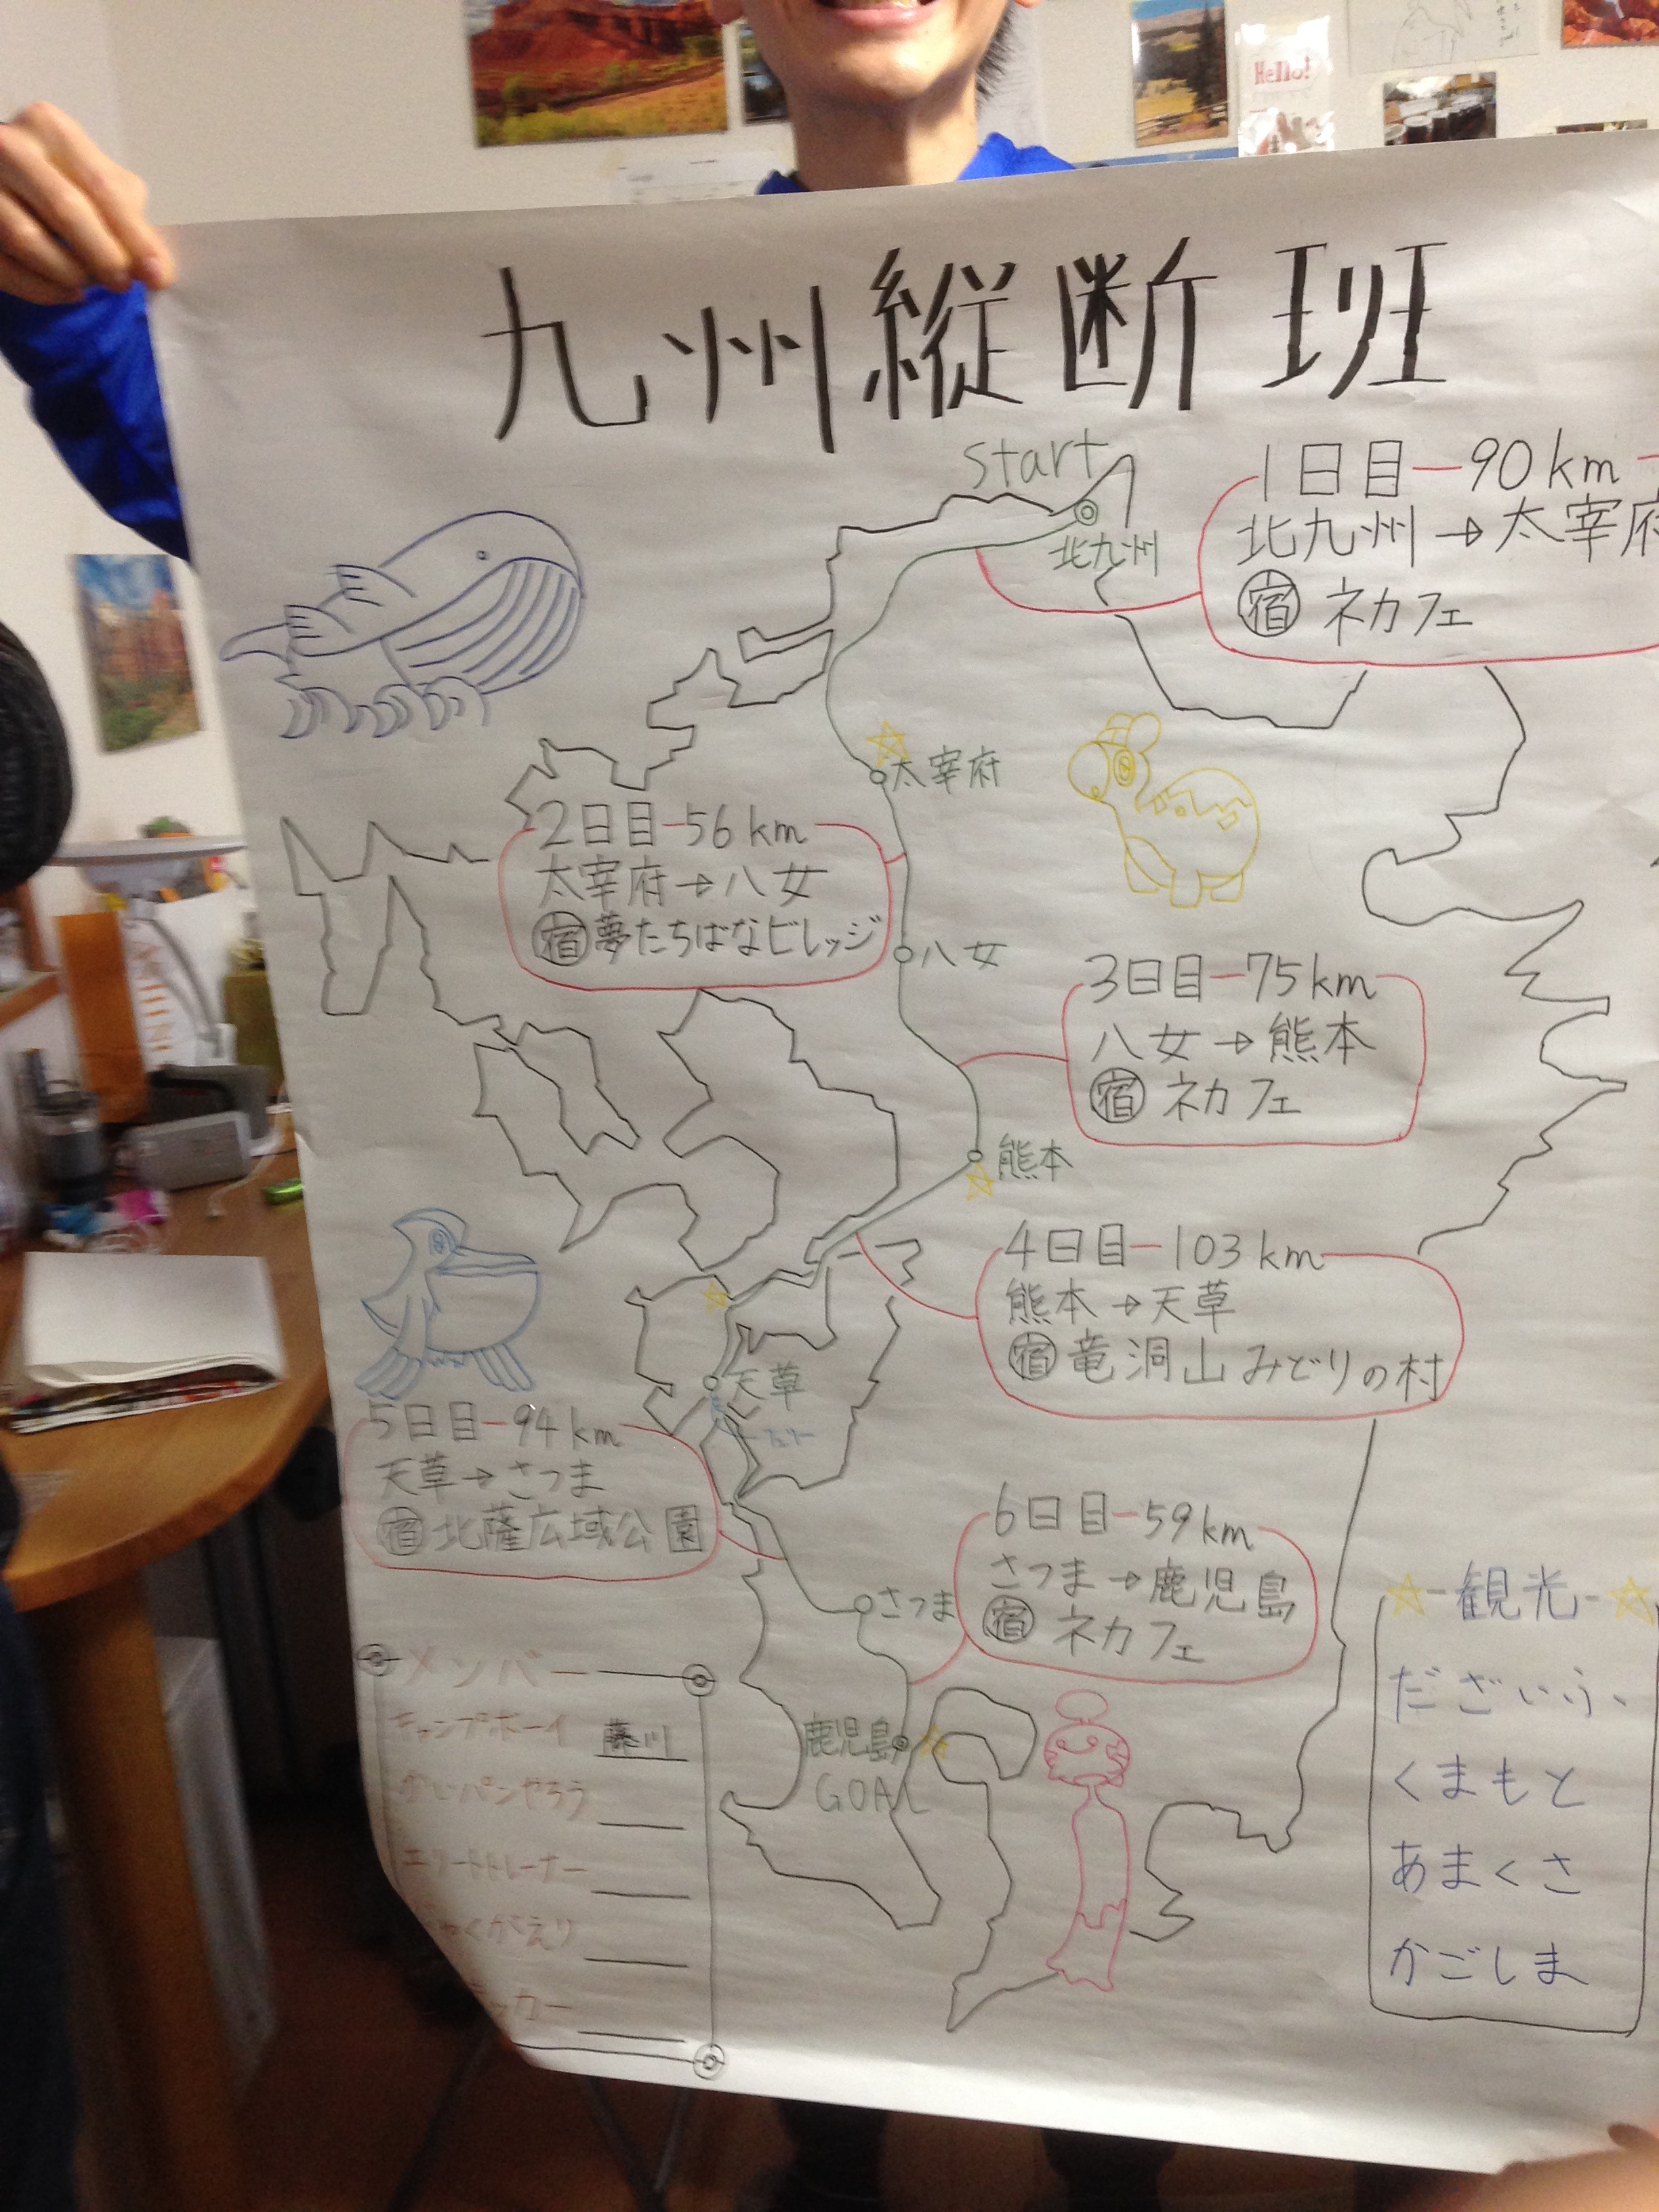 Hello!
九州縦断班
start
北九州
1日目-90km
北九州→太宰府
宿 ネカフェ
太宰府
2日目-56km
太宰府→八女
宿 夢たちばなビレッジ
八女
3日目-75km
八女→熊本
宿 ネカフェ
熊本
4日目-103km
熊本→天草
宿 竜洞山みどりの村
天草
フェリー
5日目-94km
天草→さつま
宿 北薩広域公園
さつま
6日目-59km
さつま→鹿児島
宿 ネカフェ
鹿児島
GOAL
メンバー
キャンプボーイ 藤川
たんパンやろう
エリートトレーナー
☆-観光-☆
だざいふ、
くまもと
あまくさ
かごしま